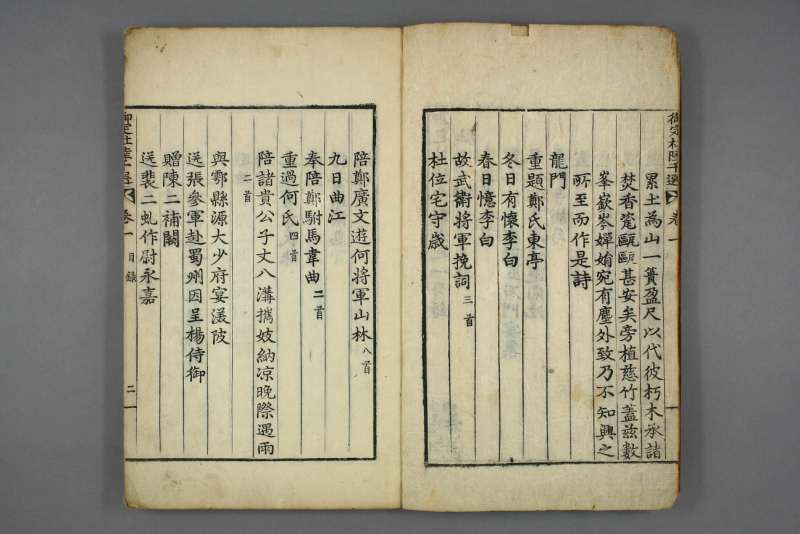 御定杜陸千選 卷一
累土為山一簣盈尺以代彼朽木承諸
焚香瓷甌甌甚安矣旁植慈竹蓋茲數
峯嶔岑嬋娟宛有塵外致乃不知興之
所至而作是詩
龍門
重題鄭氏東亭
冬日有懷李白
春日憶李白
故武衛將軍挽詞 三首
杜位宅守歲
陪鄭廣文遊何將軍山林 八首
九日曲江
奉陪鄭駙馬韋曲 二首
重過何氏 四首
陪諸貴公子丈八溝攜妓納凉晚際遇雨
二首
與鄠縣源大少府宴渼陂
送張參軍赴蜀州因呈楊侍御
贈陳二補闕
送裴二虬作尉永嘉
御定杜陸千選 卷一 目錄 二